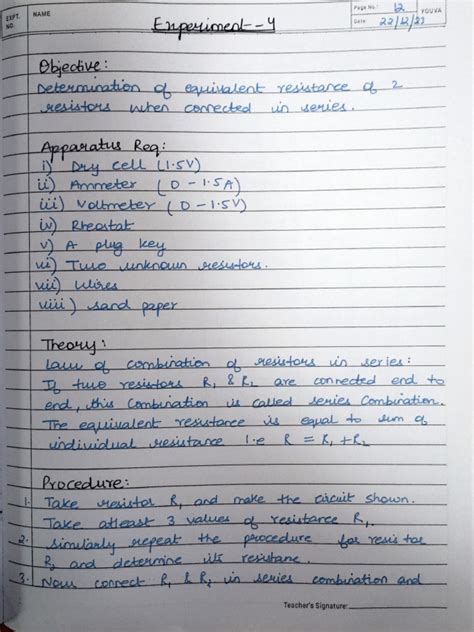 EXPT. NO. NAME Experiment-4 Page No.: 12 YOUVA
Date: 22/12/23
Objective:
Determination of equivalent resistance of 2
resistors when connected in series.
Apparatus Req:
i) Dry cell (1.5V)
ii) Ammeter (0-1.5A)
iii) Voltmeter (0-1.5V)
iv) Rheostat
v) A plug key
vi) Two unknown resistors.
vii) Wires
viii) sand paper
Theory:
Law of combination of resistors in series:
If two resistors R1 & R2 are connected end to
end, this combination is called series combination.
The equivalent resistance is equal to sum of
individual resistance i.e R = R1 + R2
Procedure:
1. Take resistor R1 and make the circuit shown.
Take atleast 3 values of resistance R1.
2. similarly repeat the procedure for resistor
R2 and determine its resistane.
3. Now connect R1 & R2 in series combination and
Teacher's Signature: